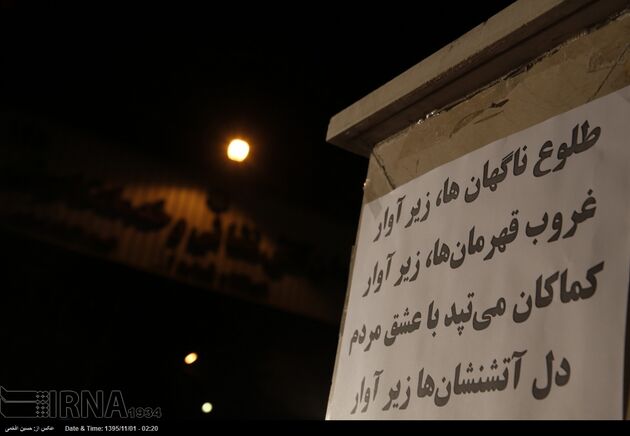 طلوع ناگهان ها، زیر آوار
غروب قهرمان‌ها، زیر آوار
کماکان می‌تپد با عشق مردم
دل آتشنشان‌ها زیر آوار
IRNA 1934
عکاس از: حسین افخمی
Date & Time: 1395/11/01 - 02:20